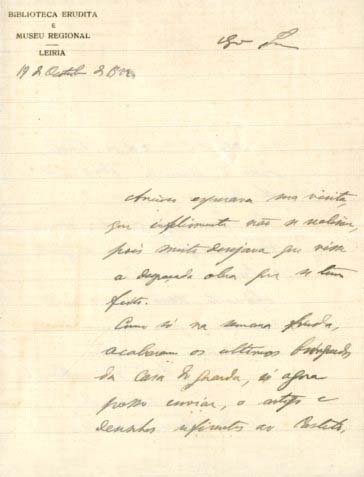 BIBLIOTECA ERUDITA
E
MUSEU REGIONAL
LEIRIA
19 de de
Exmo Snr
Ancioso esperava sua visita,
que infelizmente não se realisou,
pois muito desejava que visse
a desgraçada obra que se tem
feito.
Como só na semana finda,
acabaram os ultimos
da Casa da guarda, só agora
posso enviar, o artigo e
desenhos referentes ao Castelo,